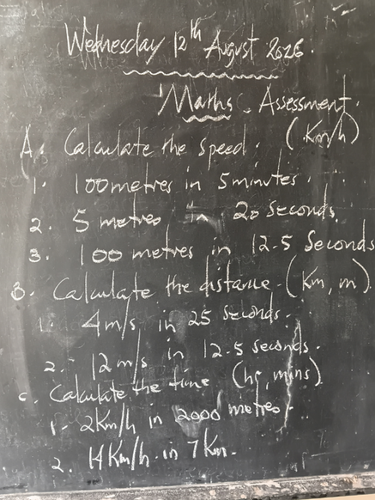 Wednesday 12th August 2026.
Maths Assessment.
A. Calculate the speed. (Km/h)
1. 100metres in 5minutes.
2. 5 metres in 20 seconds.
3. 100 metres in 12.5 Seconds
B. Calculate the distance - (Km, m).
1. 4m/s in 25 seconds.
2. - 12m/s in 12.5 seconds.
C. Calculate the time (hr, mins).
1 - 2Km/h in 2000 metres.
2. 14Km/h in 7Km.